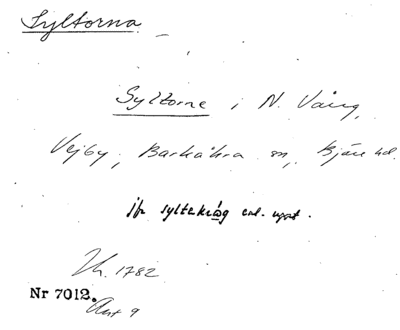 Syltorna
Syltorne i N. Vång,
Vejby, Barkåkra sn, Bjäre hd.
jfr syltekråg enl. uppt.
Ih. 1782
Nr 7012.
Akt 9